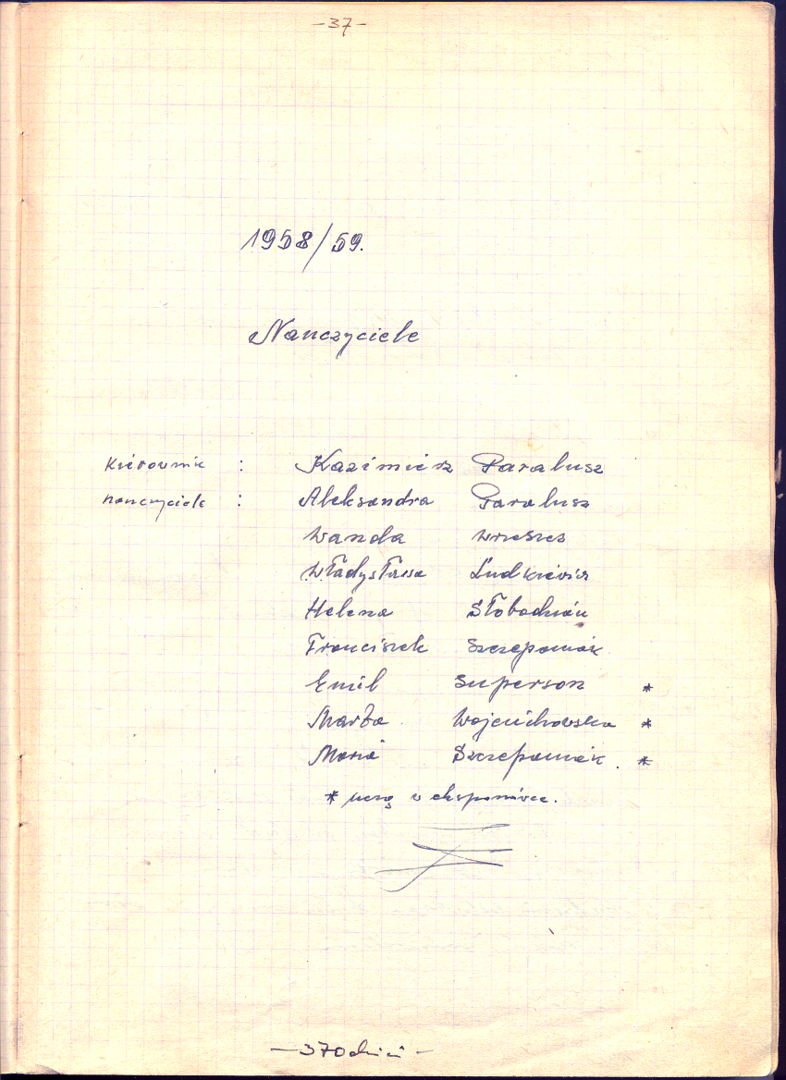 -37-
1958/59.
Nauczyciele
Kierownik : Kazimierz Paralusz
nauczyciele : Aleksandra Paralusz
Wanda Wrzeszcz
Władysława Ludkiewicz
Helena Słobodzian
Franciszek Szczepaniak
Emil Superson *
Marta Wojciechowska *
Maria Szczepaniak. *
* uczą w eksponiturce.
-370dzieci-